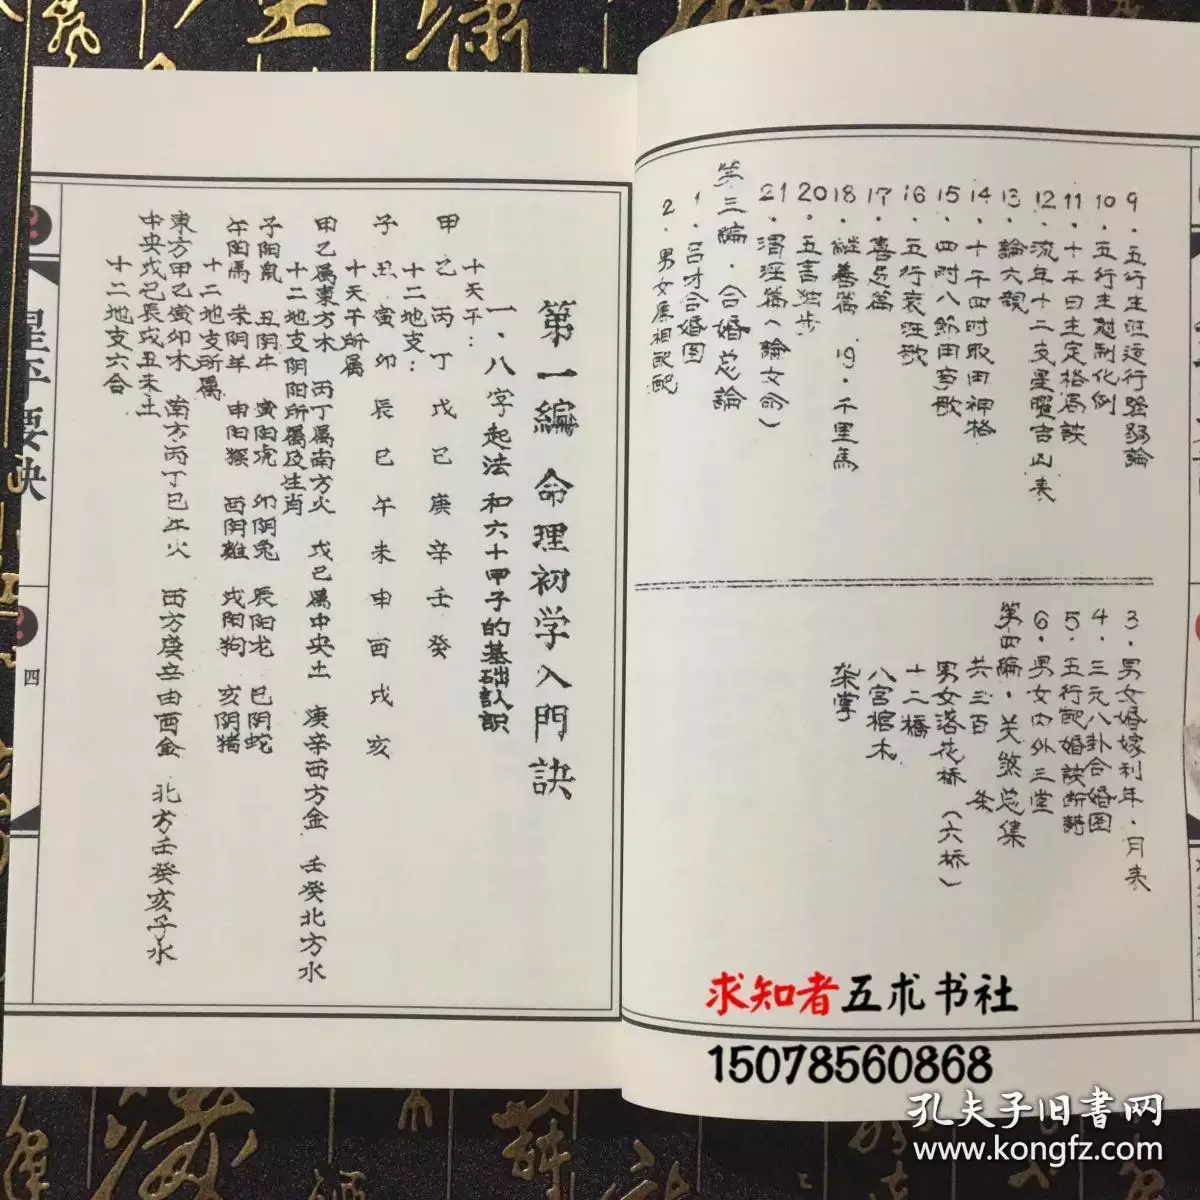 9．五行生旺运行强弱論
10．五行生尅制化例
11．十干日主定格局訣
12．流年十二支星曜吉凶表
13．論六親
14．十干四时取用神格
15．四时八節用事歌
16．五行衰旺歌
17．喜忌篇
18．継善篇 19．千里馬
20．五言独步
21．渭淫篇（論女命）
第三编．合婚总論
1．吕才合婚图
2．男女属相配配
3．男女婚嫁利年．月表
4．三元八卦合婚图
5．五行配婚訣断語
6．男女内外三堂
第四编．关煞总集
共三百 条
男女落花桥（六桥）
十二橋
八宫棺木
架掌
第一編 命理初学入門訣
一．八字起法和六十甲子的基础认识
十天干：
甲乙丙丁戊己庚辛壬癸
十二地支：
子丑寅卯辰巳午未申酉戌亥
十天干所属
甲乙属東方木 丙丁属南方火 戊己属中央土 庚辛西方金 壬癸北方水
十二地支阴阳所属及生肖
子阳鼠 丑阴牛 寅阳虎 卯阴兔 辰阳龙 巳阴蛇
午阳馬 未阴羊 申阳猴 酉阴雞 戌阳狗 亥阴猪
十二地支所属
東方甲乙寅卯木 南方丙丁巳午火 西方庚辛申酉金 北方壬癸亥子水
中央戊己辰戌丑未土
十二地支六合
星平要诀
四
求知者五术书社
15078560868
孔夫子旧書网
www.kongfz.com